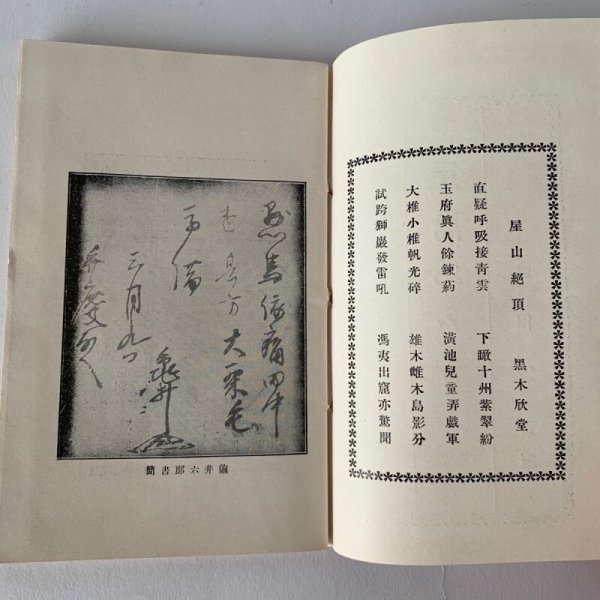 屋山絶頂 黑木欣堂
直疑呼吸接青雲 下瞰十州紫翠紛
玉府眞人餘鍊葯 潢池兒童弄戯軍
大椎小椎帆光碎 雄木雌木島影分
試跨獅巖發雷吼 馮夷出窟亦驚聞
田中
大栗毛
三月九日
龜井
龜井六郎書簡